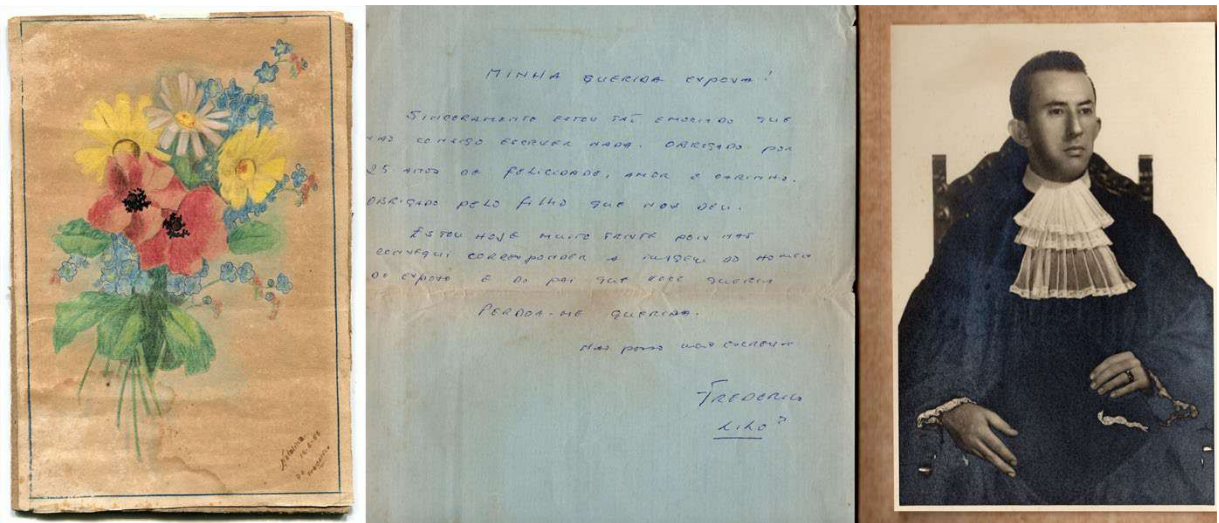 MINHA QUERIDA ESPOSA!
SINCERAMENTE ESTOU TÃO QUE
NÃO CONSIGO ESCREVER NADA. OBRIGADO POR
25 ANOS DE FELICIDADE, AMOR E CARINHO.
OBRIGADO PELO FILHO QUE NOS DEU.
ESTOU HOJE MUITO TRISTE POIS NÃO
CONSEGUI CORRESPONDER A IMAGEM DO HOMEM
DO ESPOSO E DO PAI QUE VOCE QUERIA
PERDOA-ME QUERIDA.
NÃO POSSO MAIS ESCREVER
FREDERICO
LILO